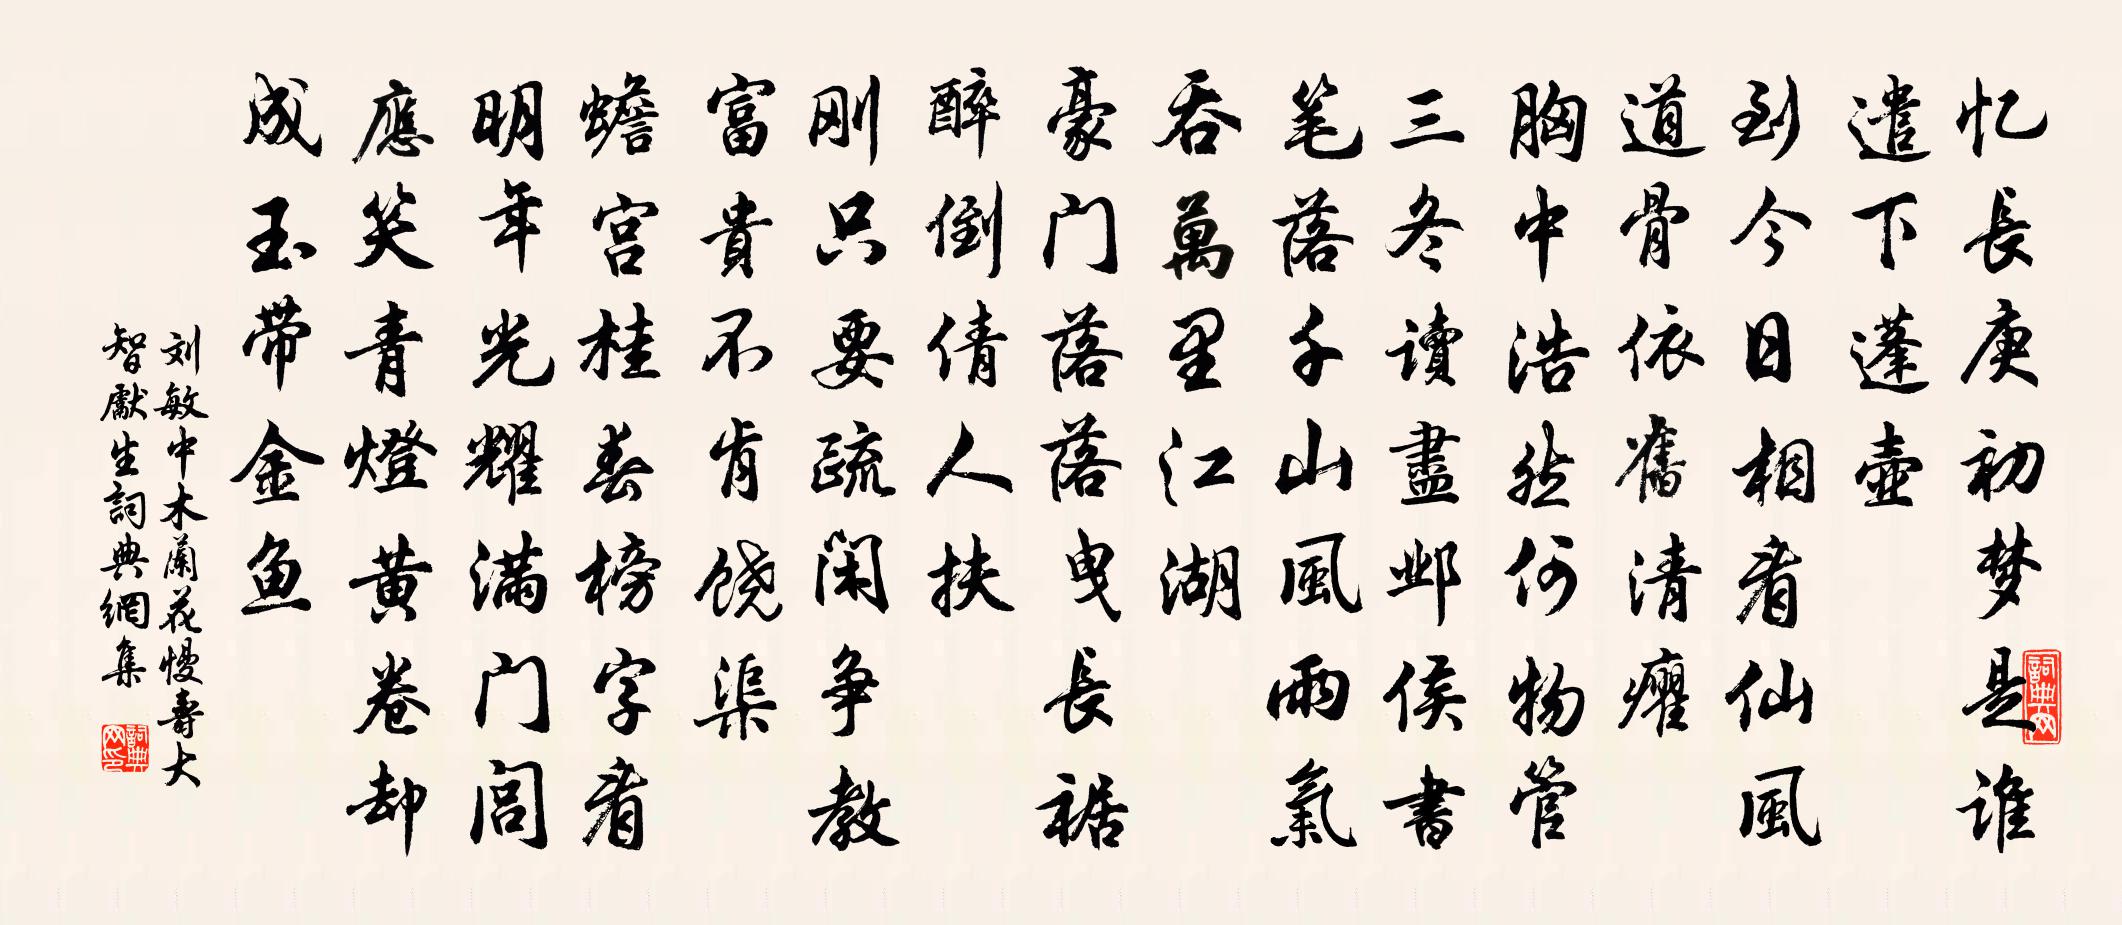 忆長庚初梦是谁
遣下蓬壺
到今日相看仙風
道骨依舊清癯
胸中浩然何物管
三冬讀盡邺侯書
笔落千山風雨氣
吞萬里江湖
豪门落落曳長裾
醉倒倩人扶
刚只要疏闲争教
富貴不肯饶渠
蟾宫桂春榜字看
明年光耀满门閭
應笑青燈黄卷却
成玉带金鱼
刘敏中木蘭花慢壽大
智獻生詞典網集
詞典网
詞典网印